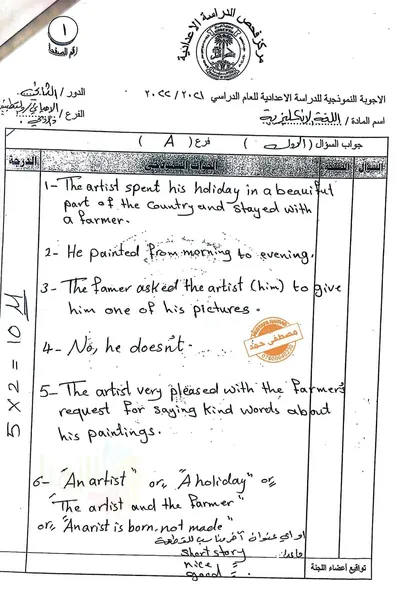 مركز فحص الدراسة الاعدادية
١
رقم الصفحة
الاجوبة النموذجية للدراسة الاعدادية للعام الدراسي ٢٠٢١ / ٢٠٢٢
الدور /
اسم المادة / اللغة الإنكليزية
الفرع /
جواب السؤال ( الاول ) فرع ( A )
السؤال
الدرجة
1- The artist spent his holiday in a beauiful
part of the country and stayed with
a farmer.
2- He painted from morning to evening.
3- The famer asked the artist (him) to give
him one of his pictures.
4- No, he doesn't.
مصطفى حمد
5- The artist very pleased with the farmers
request for saying kind words about
his paintings.
5 x 2 = 10 M
6- "An artist" or, "A holiday" or
"The artist and the farmer"
or, "An arist is born, not made"
او اي عنوان آخر مناسب للقطعة
ماعدا
short story
nice =
good =
تواقيع أعضاء اللجنة